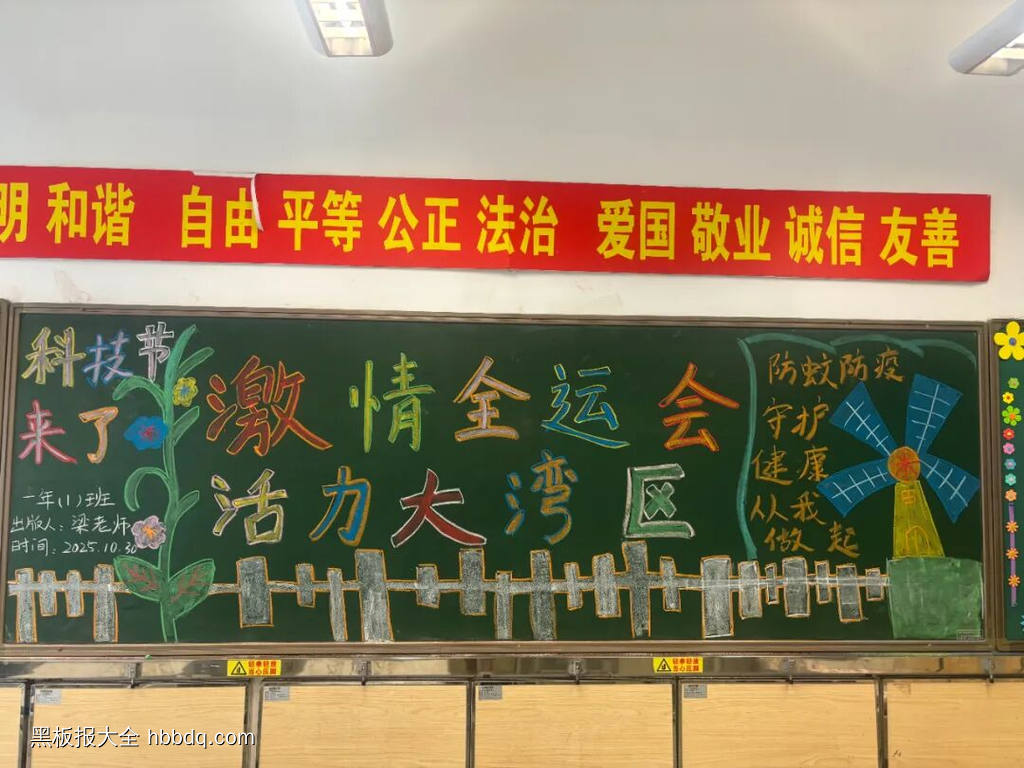 明 和谐 自由 平等 公正 法治 爱国 敬业 诚信 友善
科技节
来了
一年(1)班
出版人：梁老师
时间：2025.10.30
激情全运会
活力大湾区
防蚊防疫
守护
健康
从我
做起
轻拿轻放
当心压脚
轻拿轻放
当心压脚
黑板报大全 hbbdq.com